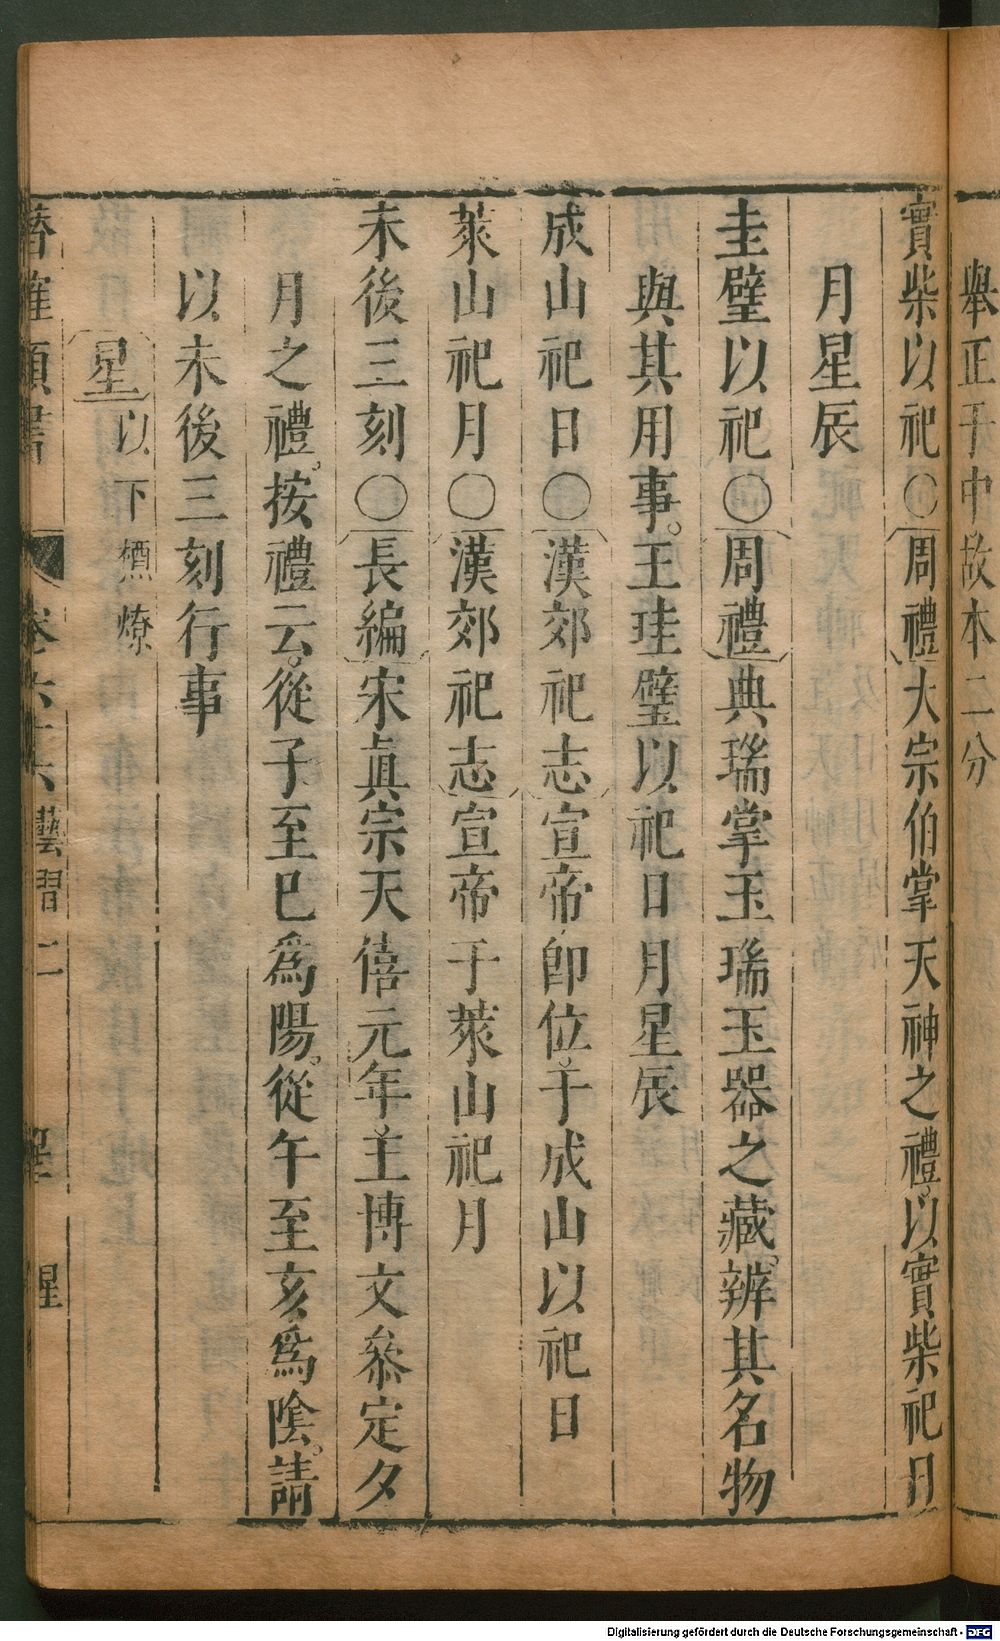 舉正于中故本二分
實柴以祀○周禮大宗伯掌天神之禮以實柴祀日
月星辰
圭璧以祀○周禮典瑞掌玉瑞玉器之藏辨其名物
與其用事。王圭璧以祀日月星辰
成山祀日○漢郊祀志宣帝卽位于成山以祀日
萊山祀月○漢郊祀志宣帝于萊山祀月
未後三刻○長編宋眞宗天僖元年主博文叅定夕
月之禮。按禮云。從子至巳爲陽。從午至亥爲陰。請
以未後三刻行事
星以下槱燎
卷六十六 藝習一 星
Digitalisierung gefördert durch die Deutsche Forschungsgemeinschaft - DFG